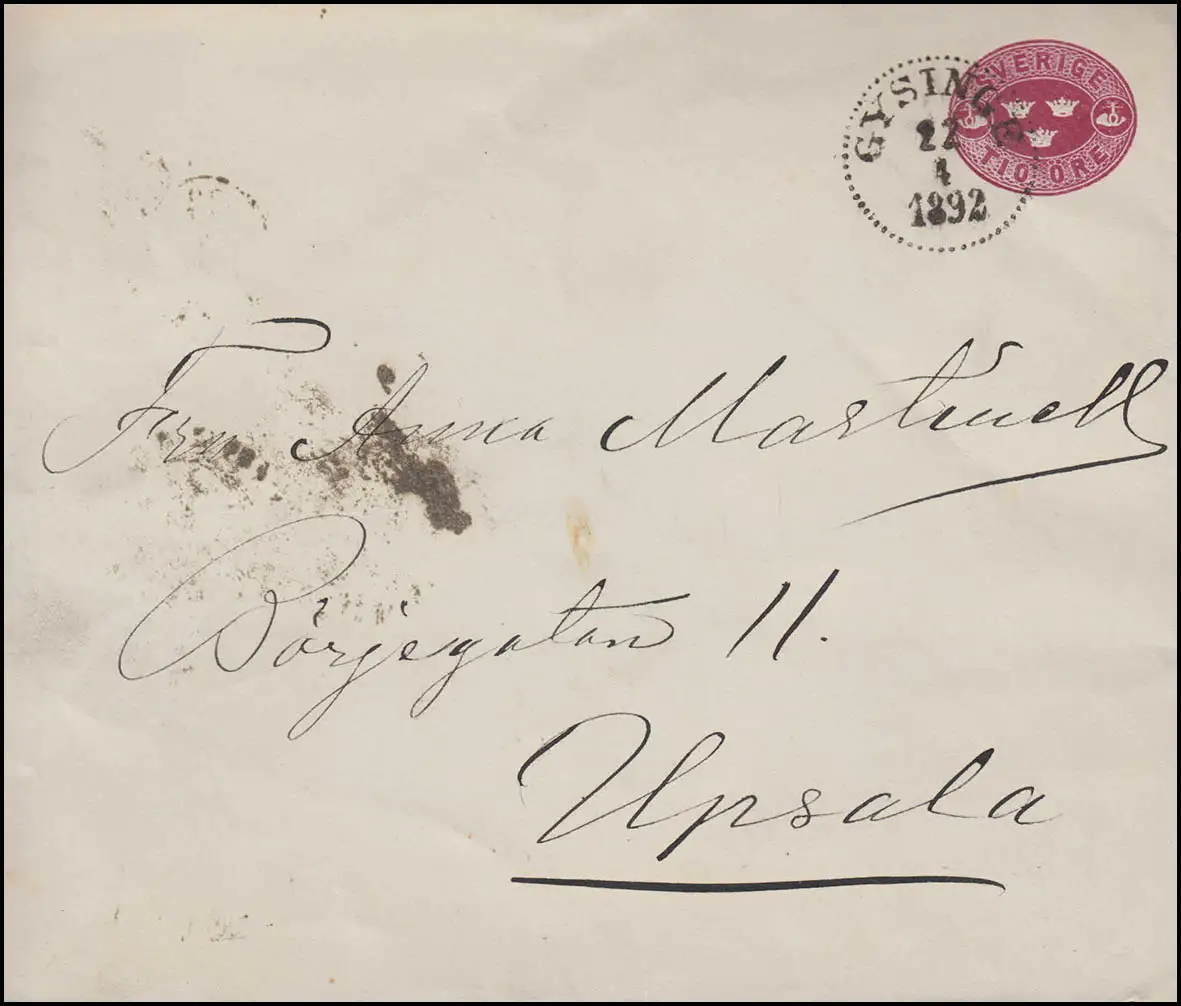 SVERIGE
TIO ÖRE
GYSINGE
22
4
1892
Fru Anna
Börjegatan 11.
Upsala